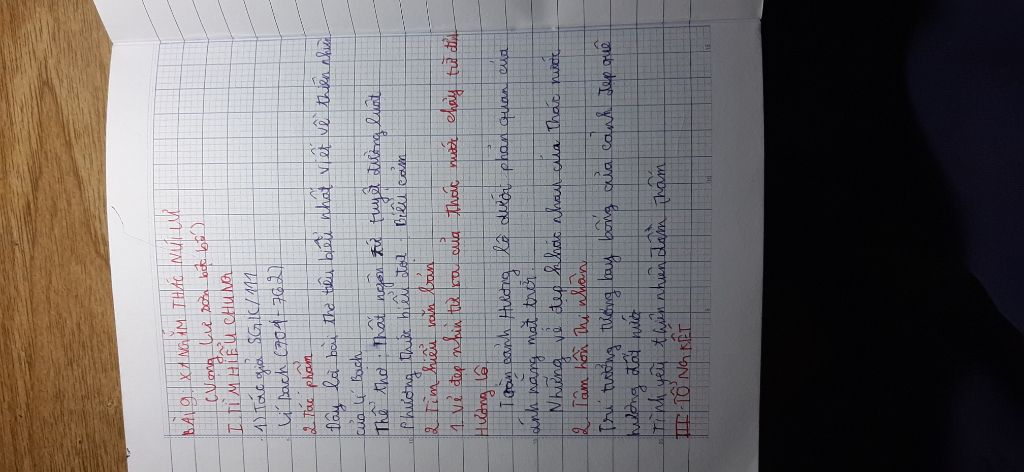 BÀI 9 XA NGẮM THÁC NÚI LƯ
(Vọng Lư sơn bộc bố)
I. TÌM HIỂU CHUNG
1) Tác giả SGK/111
Lí Bạch (701-762)
2 Tác phẩm
Đây là bài thơ tiêu biểu nhất viết về thiên nhiên
của Lí Bạch
Thể thơ: Thất ngôn tứ tuyệt đường luật
Phương thức biểu đạt: Biểu cảm
2 Tìm hiểu văn bản
1. Vẻ đẹp nhìn từ xa của thác nước chảy từ đỉnh
Hương Lô
Toàn cảnh Hương lô dưới phản quan của
ánh nắng mặt trời
Những vẻ đẹp khác nhau của Thác nước
2 Tâm hồn thi nhân
Trí tưởng tượng bay bổng của cảnh đẹp quê
hương đất nước
Tình yêu thiên nhiên đằm thắm
III. TỔNG KẾT